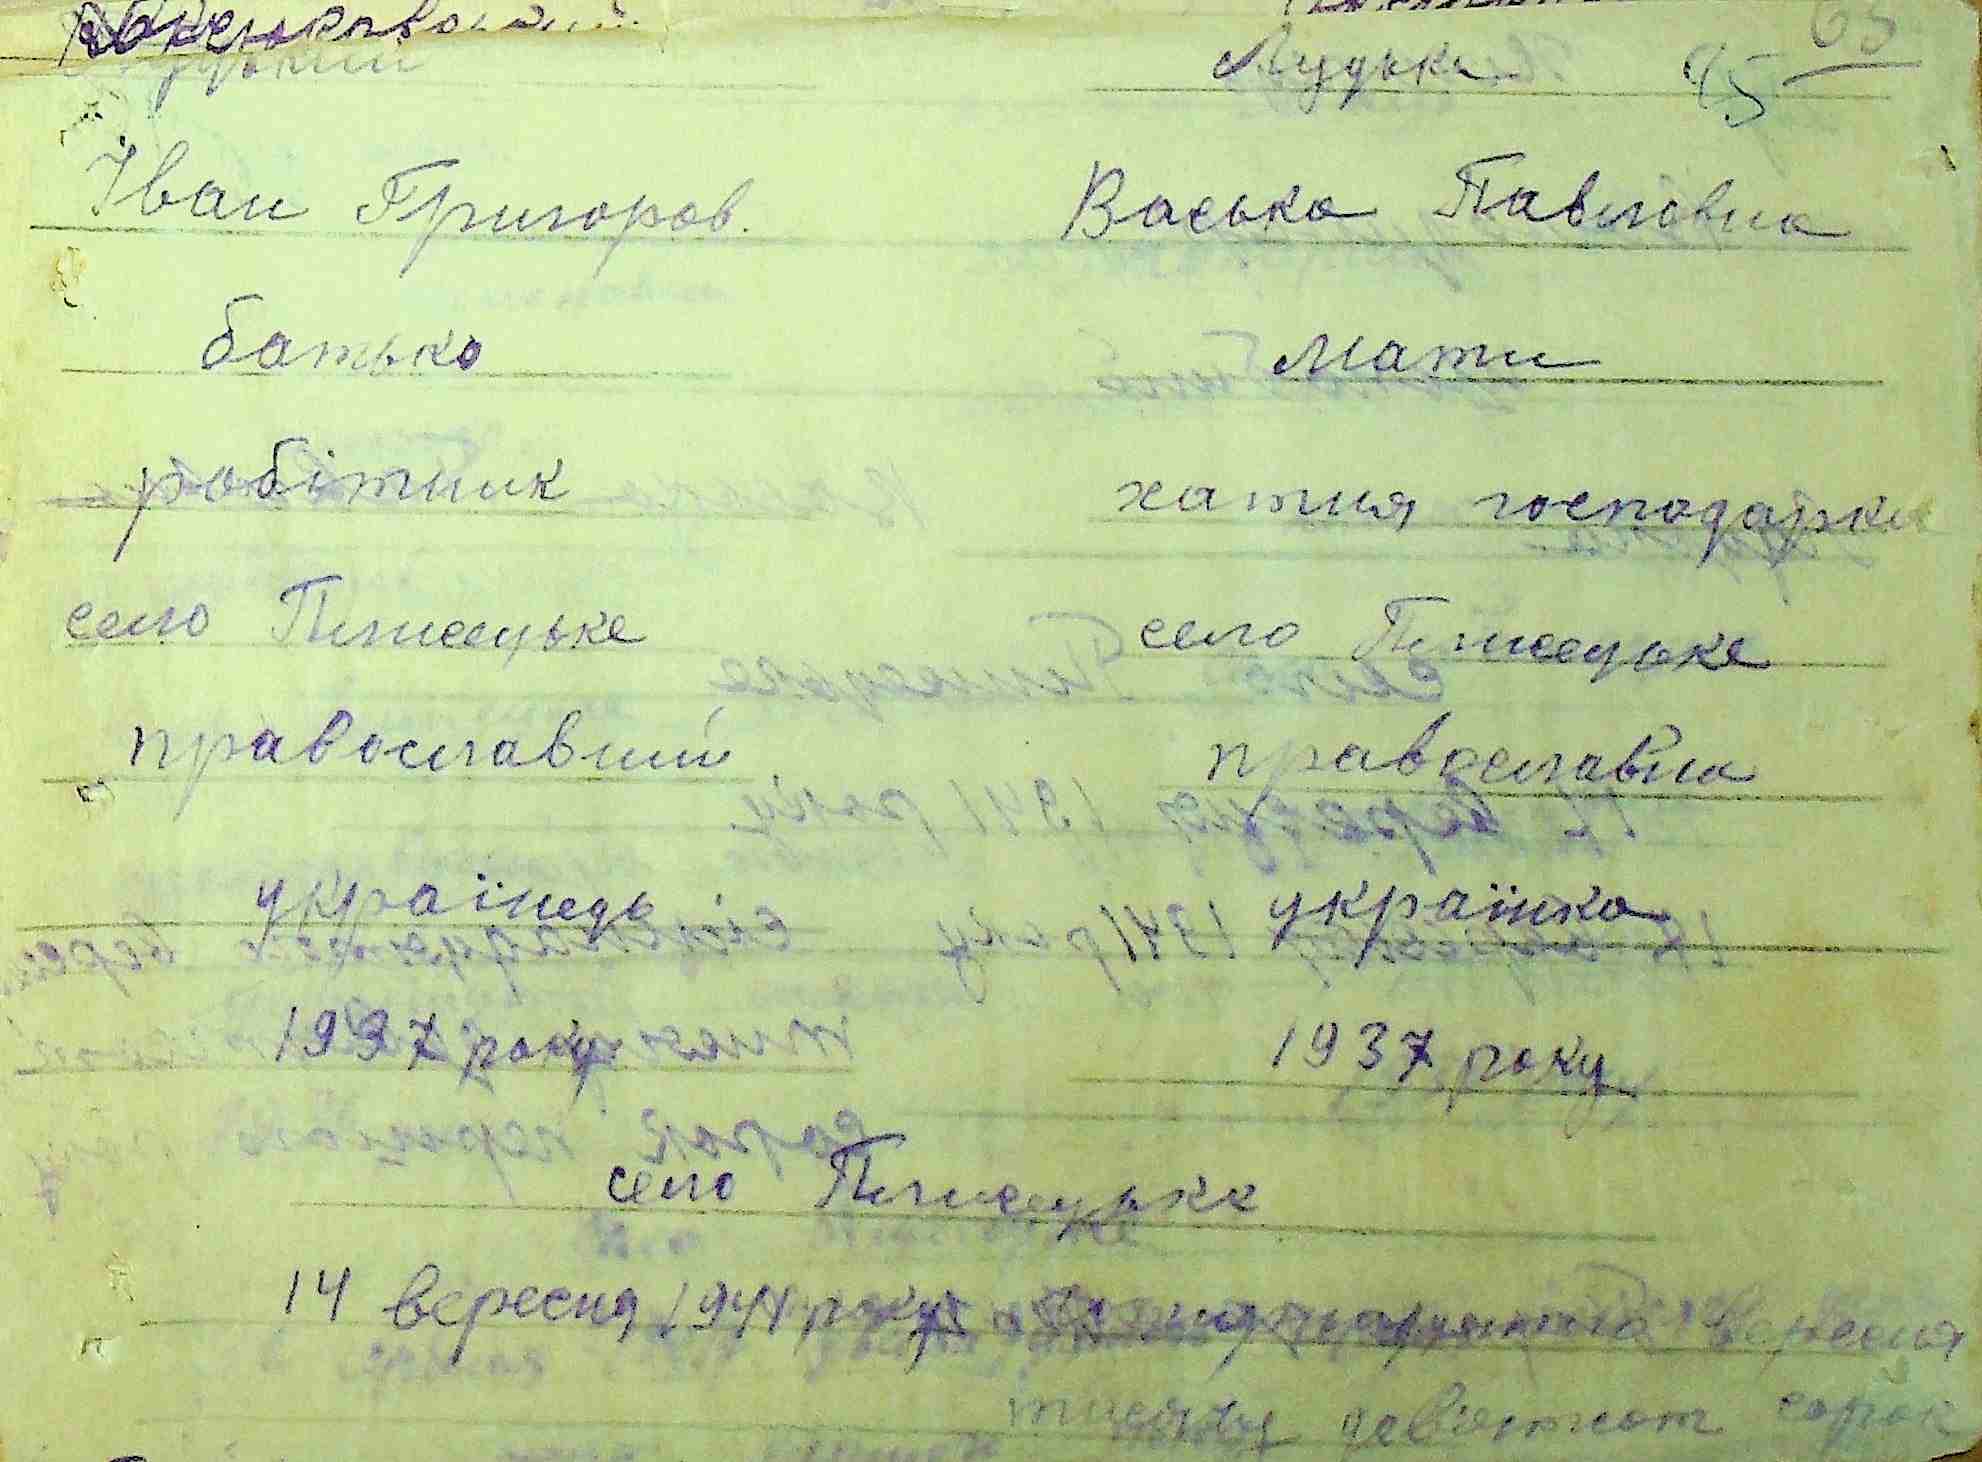 Луцький
Луцька 45 63
Іван Григоров. Васька Павловна
батько мати
робітник хатня господарка
село Плисецьке село Плисецьке
православний православна
українець українка
1937 року 1937 року
село Плисецьке
14 вересня 1941 року чотирнадцятого вересня
тисяча дев'ятсот сорок